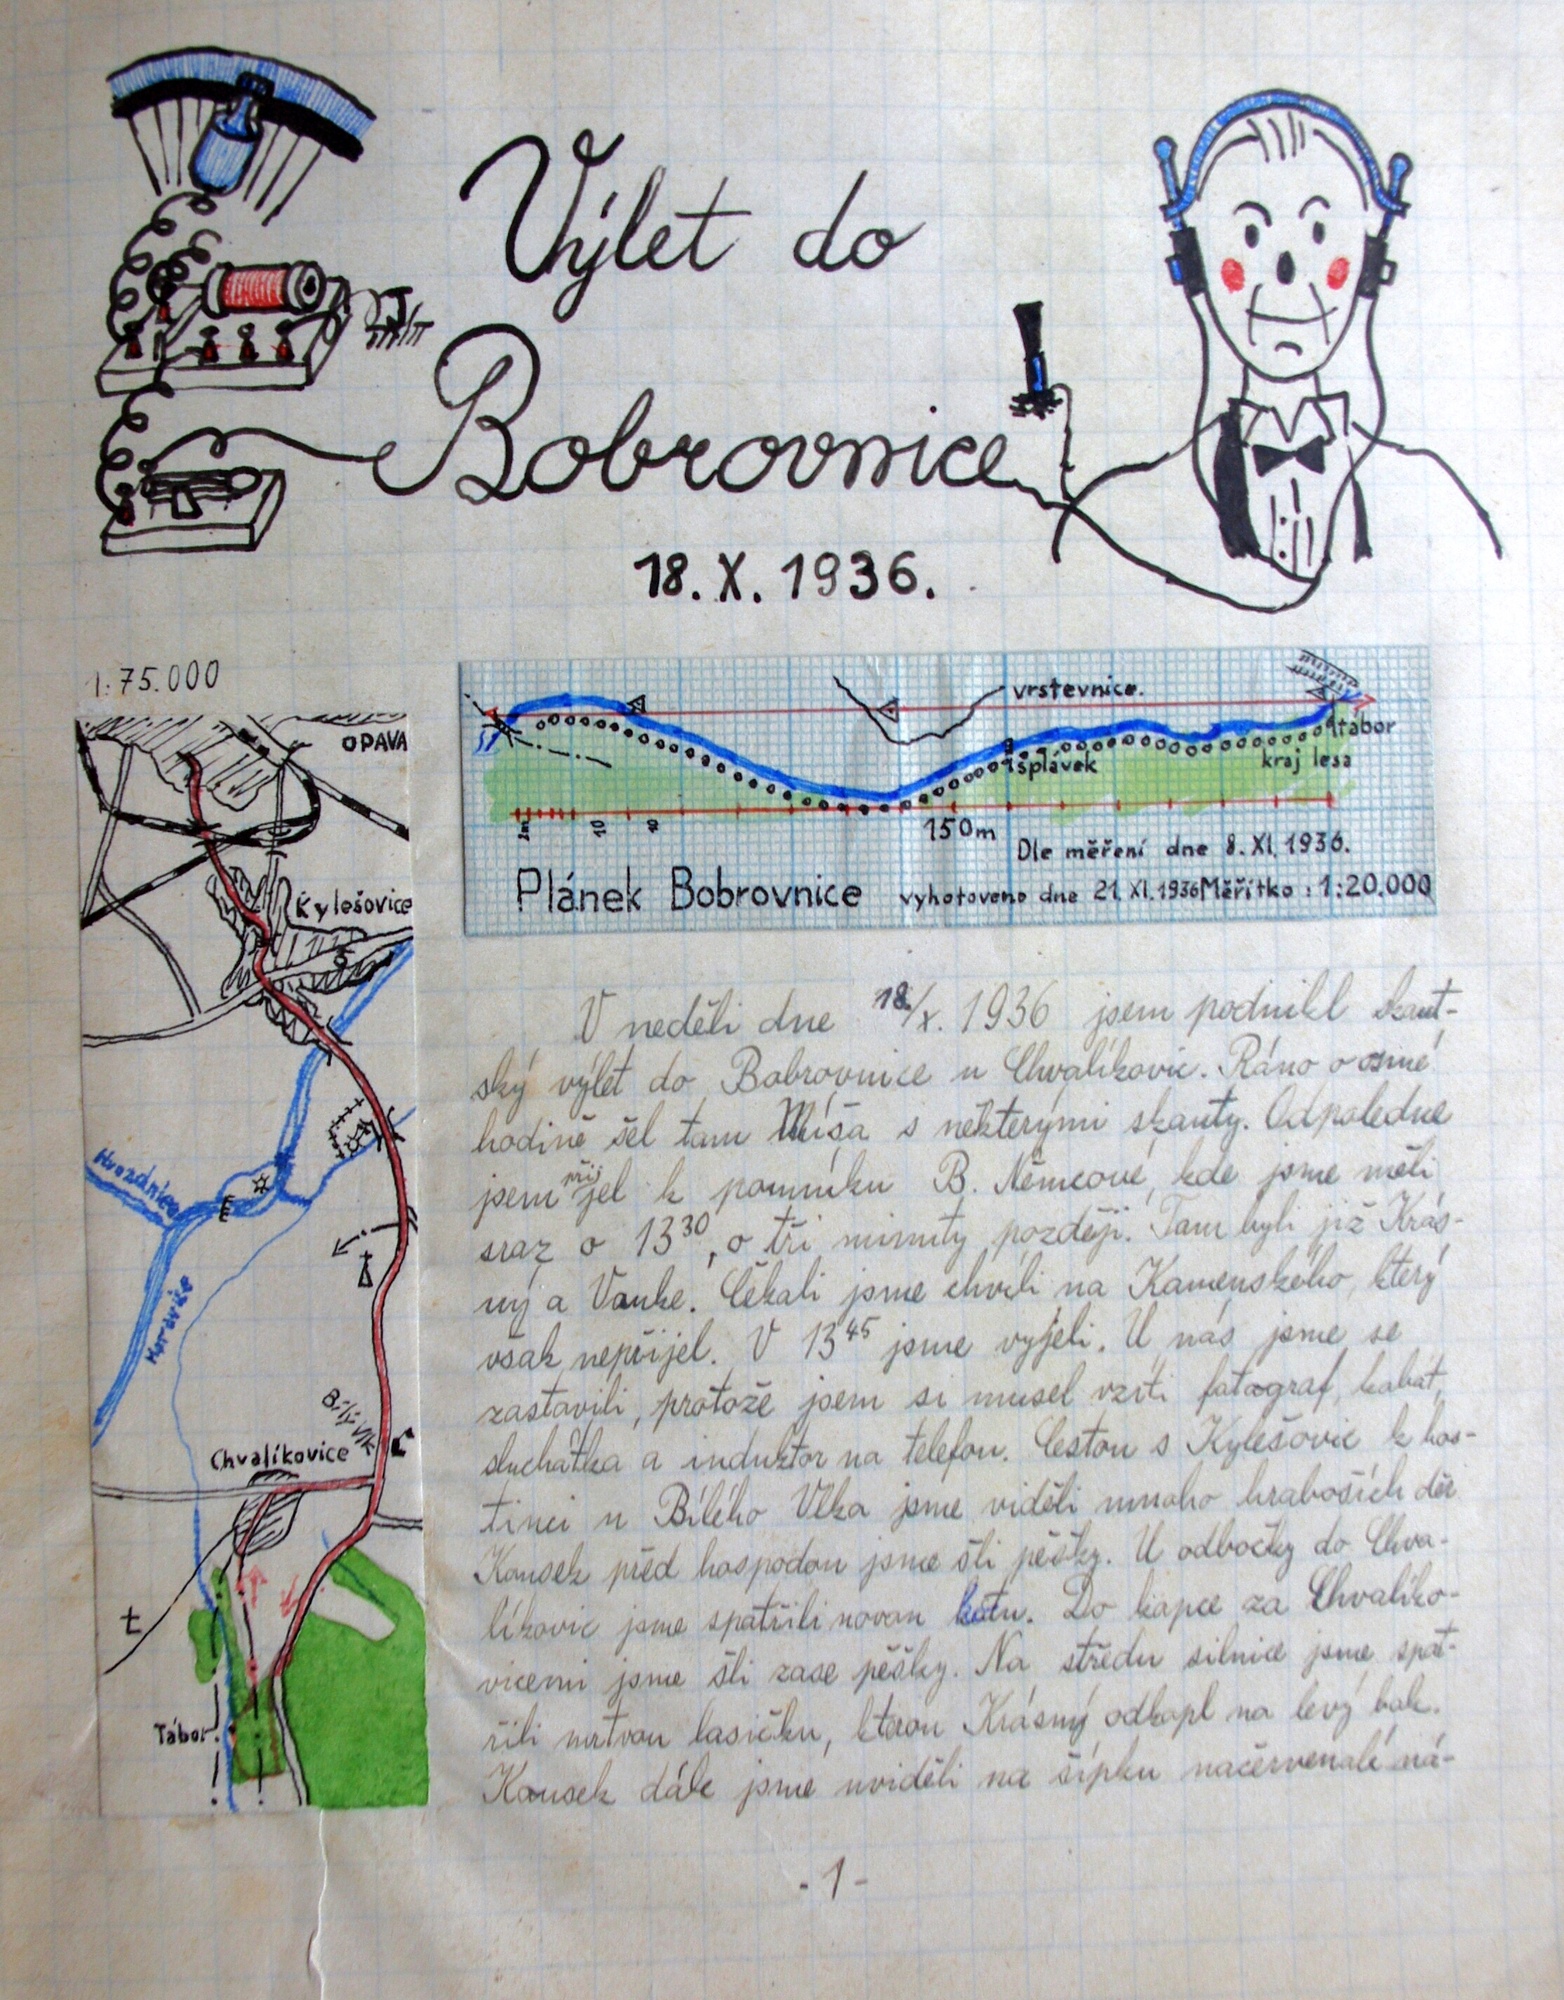 Výlet do
Bobrovnice
18. X. 1936.
1:75.000
OPAVA
Kylešovice
Hvozdnice
Moravice
Bílý Vlk
Chvalíkovice
t
Tábor
vrstevnice.
tábor
splávek
kraj lesa
1m
10
10
150m
Dle měření dne 8. XI. 1936.
Plánek Bobrovnice vyhotoveno dne 21. XI. 1936 Měřítko : 1:20.000
V neděli dne 18./X. 1936 jsem podnikl skaut-
ský výlet do Bobrovnice u Chvalíkovic. Ráno o osmé
hodině šel tam Míša s některými skauty. Odpoledne
jsem přijel k pomníku B. Němcové, kde jsme měli
sraz o 13³⁰, o tři minuty později. Tam byli již Krás-
ný a Vanke. Čekali jsme chvíli na Kamenského, který
však nepřijel. V 13⁴⁵ jsme vyjeli. U nás jsme se
zastavili, protože jsem si musel vzíti fotograf, kabát,
sluchátka a induktor na telefon. Cestou s Kylešovic k hos-
tinci u Bílého Vlka jsme viděli mnoho hraboších děr
Kousek před hospodou jsme šli pěšky. U odbočky do Chva-
líkovic jsme spatřili novou kótu. Do kopce za Chvalíko-
vicemi jsme šli zase pěšky. Na středu silnice jsme spat-
řili mrtvou lasičku, kterou Krásný odkopl na levý bok.
Kousek dále jsme uviděli na šípku načervenalé ná-
-1-